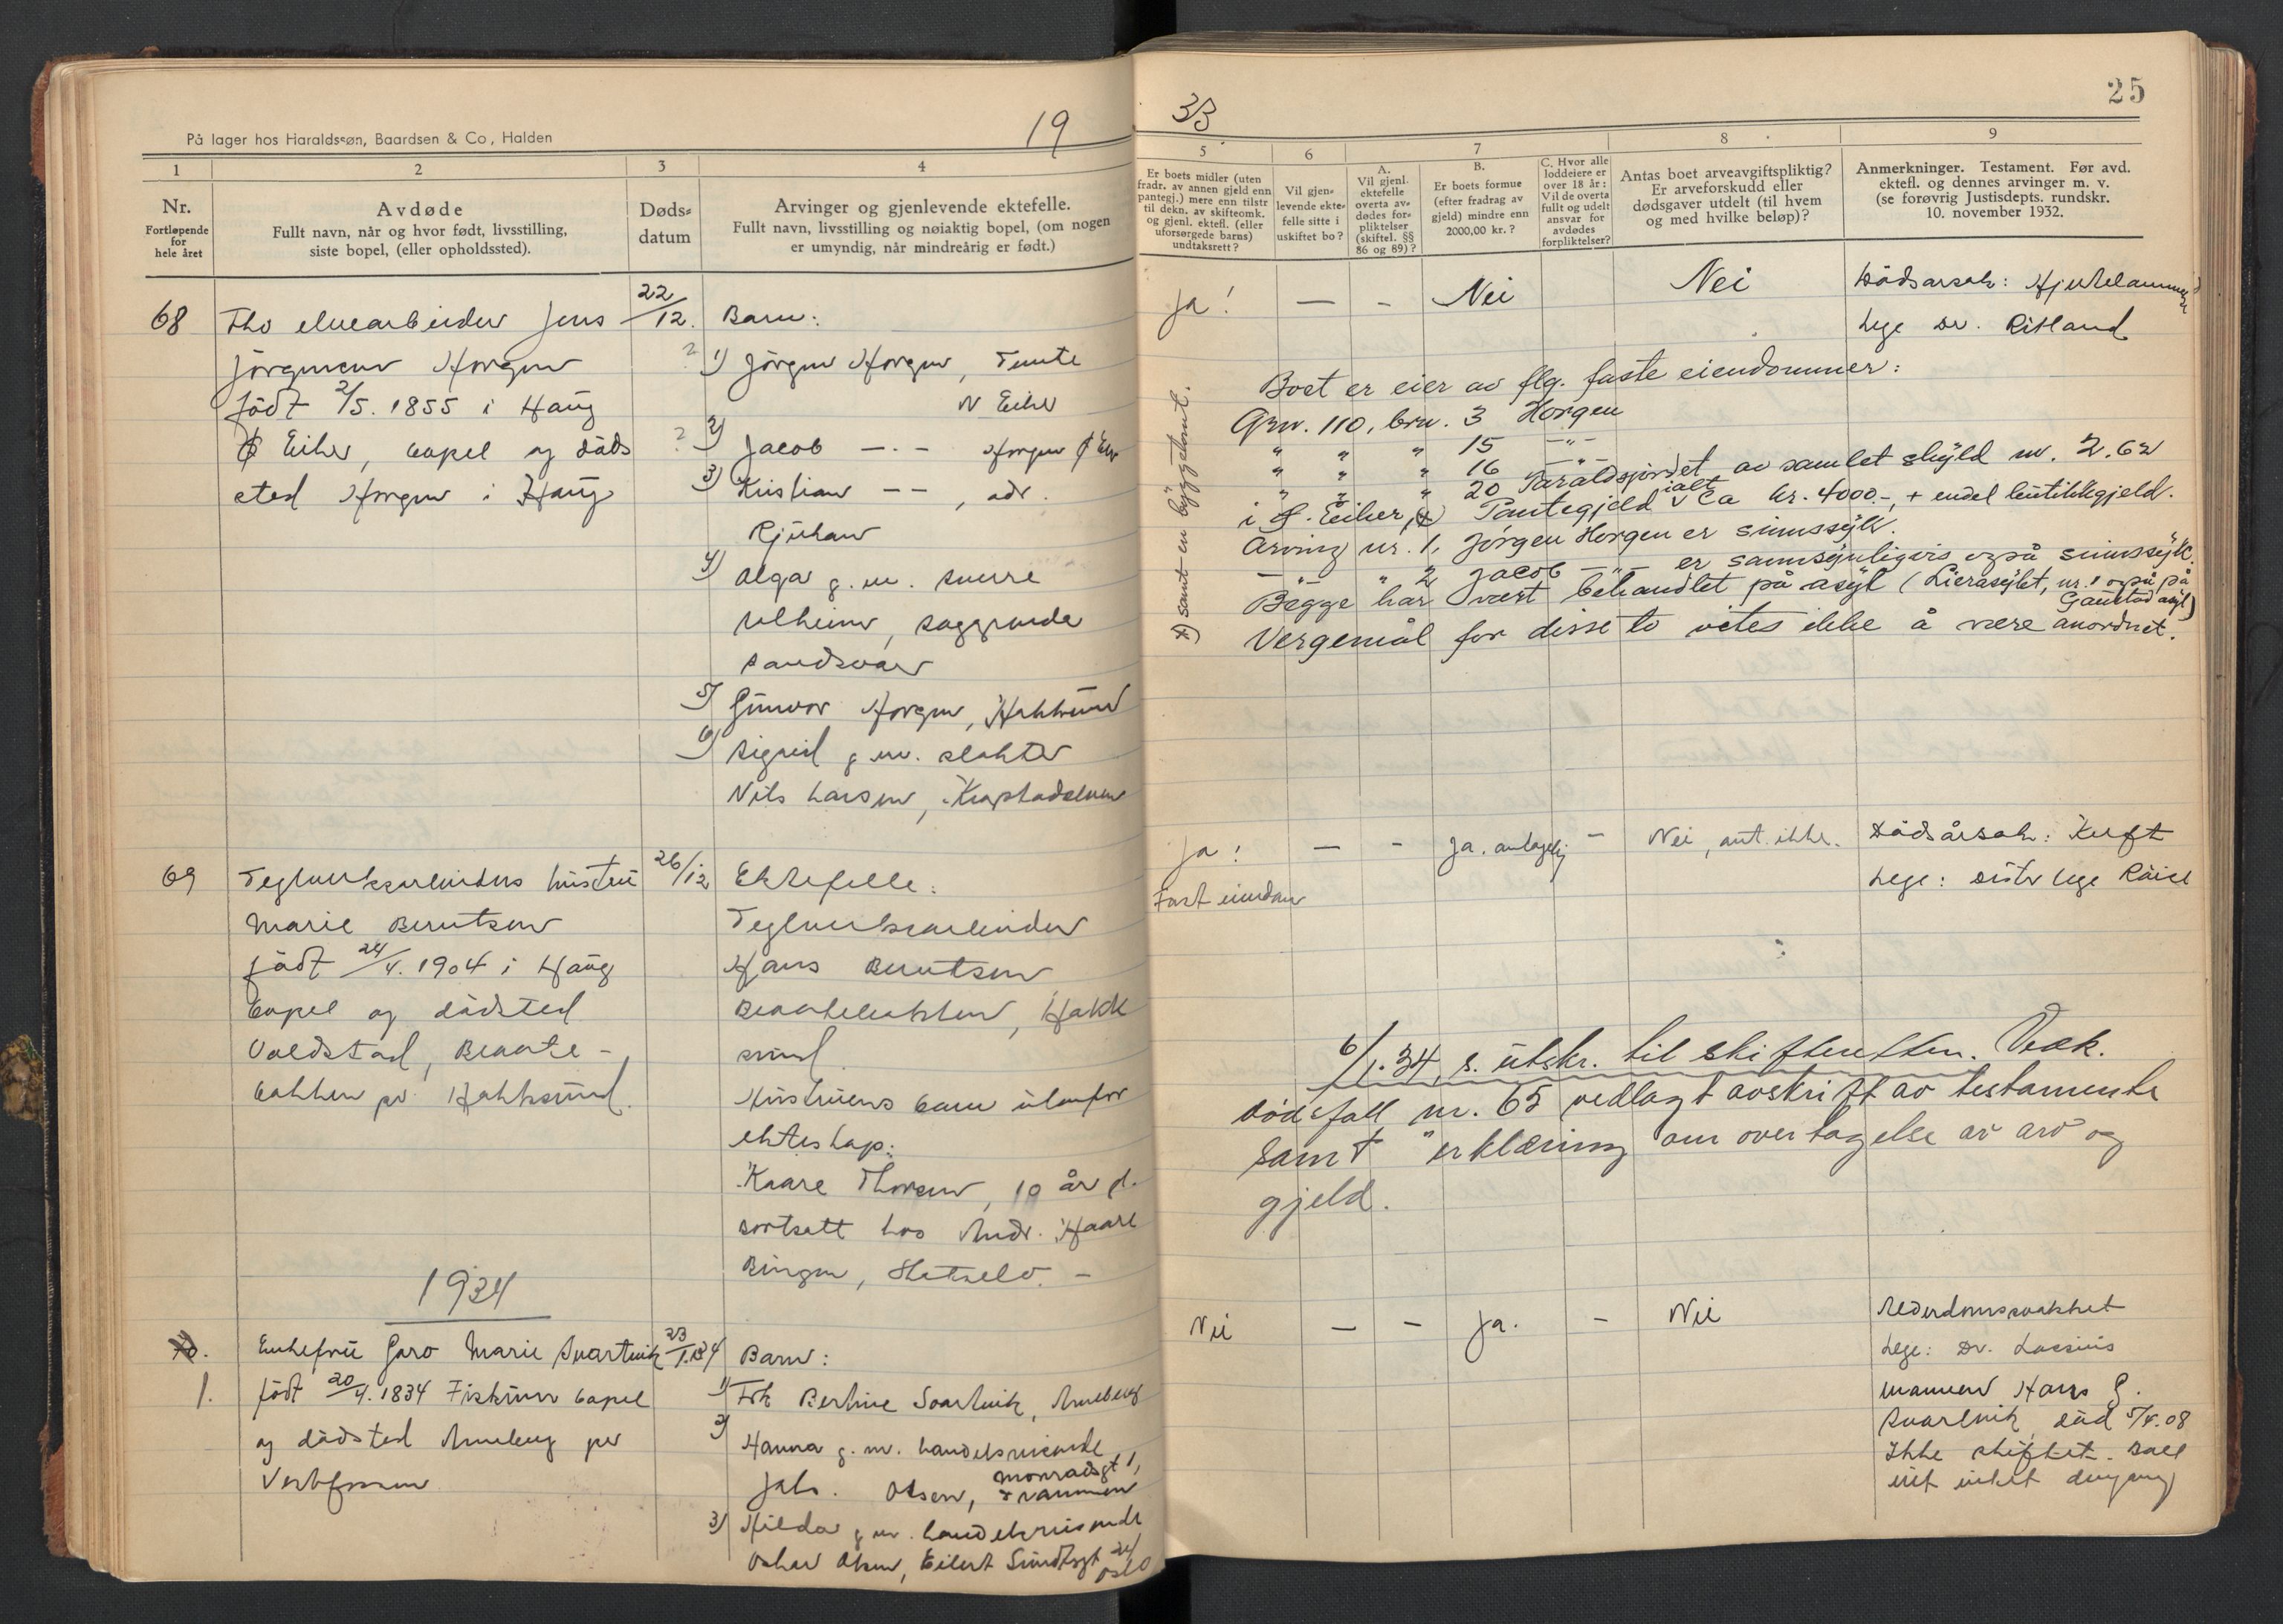 På lager hos Haraldssøn, Baardsen & Co, Halden
19
1
2
3
4
Nr.
Fortløpende
for
hele året
Avdøde
Fullt navn, når og hvor født, livsstilling,
siste bopel, (eller opholdssted).
Døds-
datum
Arvinger og gjenlevende ektefelle.
Fullt navn, livsstilling og nøiaktig bopel, (om nogen
er umyndig, når mindreårig er født.)
68
Jens
22/12.
Barn:
Jörgensen Horgen
1) Jörgen Horgen, Tomte
födt 2/5. 1855 i Haug
N Eiker
Eiker, bopel og döds
2) Jacob — . — Horgen
sted Horgen i Haug
3) Kristian — —, adr.
Rjukan
4) Olga g. m. Sverre
Ulheim,
Sandsvær
5) Gunvor Horgen, Hokksund
6) Sigrid g. m. slakter
Nils Larsen,
69
Teglverksarbeiders hustru
26/12
Ektefelle:
Marie Berntsen
Teglverksarbeider
födt 24/4. 1904 i Haug
Hans Berntsen
bopel og dödsted
Hokk
Voldstad,
sund
pr. Hokksund.
Hustruens barn utenfor
ekteskap:
Kaare Thorsen, 10 år
bortsatt hos Andr. Haare
Bingen,
1934
70.
1.
Enkefru Goro Marie Svartvik
23/1.34
Barn:
födt 20/4. 1834 Fiskum bopel
1) Frk Bertine Svartvik,
og dödsted pr
2) Hanna g. m. handelsreisende
Vestfossen
Jahs. Olsen, Monradsgt 1,
Drammen
3) Hilda g. m. handelsreisende
Oskar Olsen, Eilert Sundtsgt
Oslo
33
25
5
6
7
8
9
Er boets midler (uten
fradr. av annen gjeld enn
pantegj.) mere enn tilstr
til dekn. av skifteomk.
og gjenl. ektefl. (eller
uforsørgede barns)
undtaksrett?
Vil gjen-
levende ekte-
felle sitte i
uskiftet bo?
A.
Vil gjenl.
ektefelle
overta av-
dødes for-
pliktelser
(skiftel. §§
86 og 89)?
B.
Er boets formue
(efter fradrag av
gjeld) mindre enn
2000,00 kr.?
C. Hvor alle
loddeiere er
over 18 år:
Vil de overta
fullt og udelt
ansvar for
avdødes
forpliktelser?
Antas boet arveavgiftspliktig?
Er arveforskudd eller
dødsgaver utdelt (til hvem
og med hvilke beløp)?
Anmerkninger. Testament. Før avd.
ektefl. og dennes arvinger m. v.
(se forøvrig Justisdepts. rundskr.
10. november 1932.
Ja!
—
-
Nei
Nei
Dödsårsak: Hjertelammelse
Lege Dr. Ritland
Boet er eier av flg. faste eiendommer:
Gnr. 110, bnr. 3 Horgen
" " " 15 —"—
" " " 16 —"—
" " " 20 Taraldsjordet av samlet skyld m. 2.62
i Ö. Eiker, x) Pantegjeld ialt ca kr. 4000.-, + endel butikkgjeld.
Arving nr. 1, Jörgen Horgen er sinnssyk.
— " — " 2, Jacob — " — er sannsynligvis også sinnssyk.
Begge har vært behandlet på asyl (Lierasylet, nr. 1 også på
Gaustad asyl)
Vergemål for disse to vites ikke å være anordnet.
x) samt en byggetomt.
Ja!
—
-
Ja. antagelig
-
Nei, ant. ikke.
Dödsårsak: Kreft
Fast eiendom
Lege: Distr lege
6/1. 34, s. utskr. til skifteretten. Vedk.
dödsfall nr. 65 vedlagt avskrift av testamente
samt "erklæring om overtagelse av arv og
gjeld.
Nei
—
-
Ja.
-
Nei
Alderdomssvakhet
Lege: Dr. Lassius
Mannen Hans G.
Svartvik död 5/4.08
Ikke skiftet.